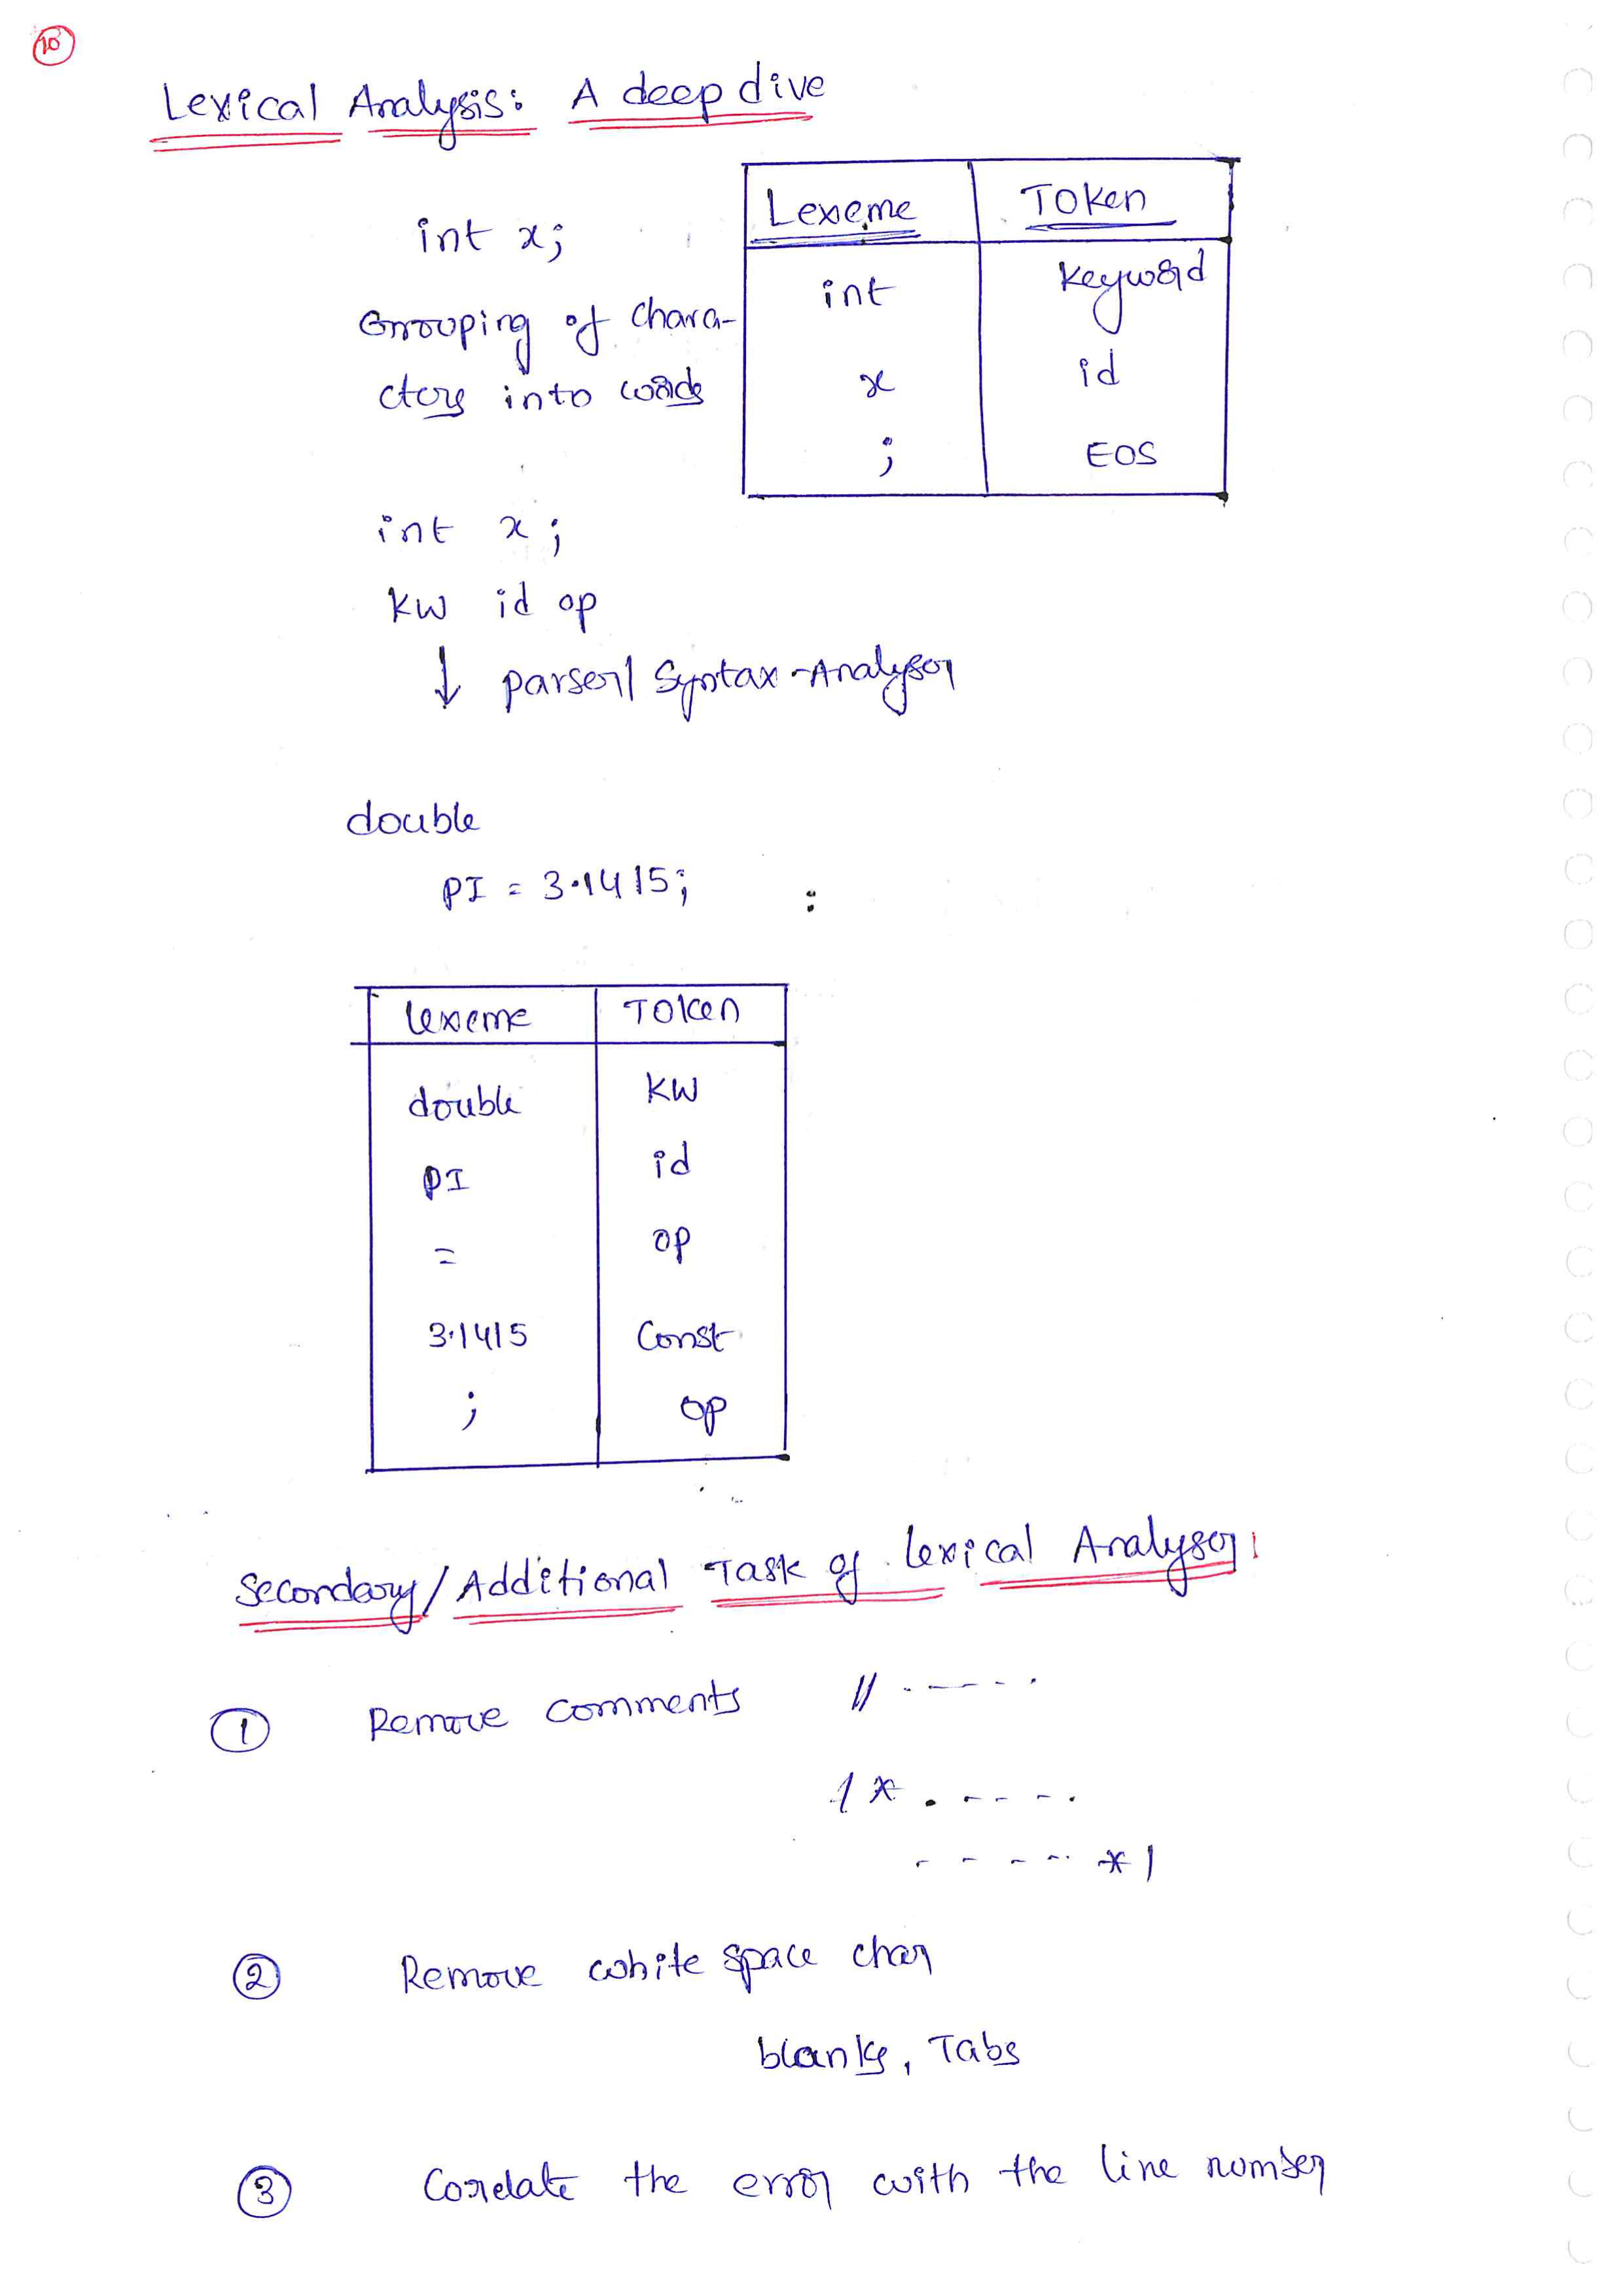 10
Lexical Analysis: A deep dive
int x;
Grouping of chara-
cters into words
Lexeme Token
int keyword
x id
; EOS
int x;
kw id op
↓ parser/ Syntax-Analyser
double
PI = 3.1415; :
lexeme Token
double kw
PI id
= op
3.1415 Const
; op
Secondary/Additional Task of Lexical Analyser:
① Remove comments // - - - - -
/* . - - - - .
- - - - - */
② Remove white space char
blanks, Tabs
③ Corelate the error with the line number